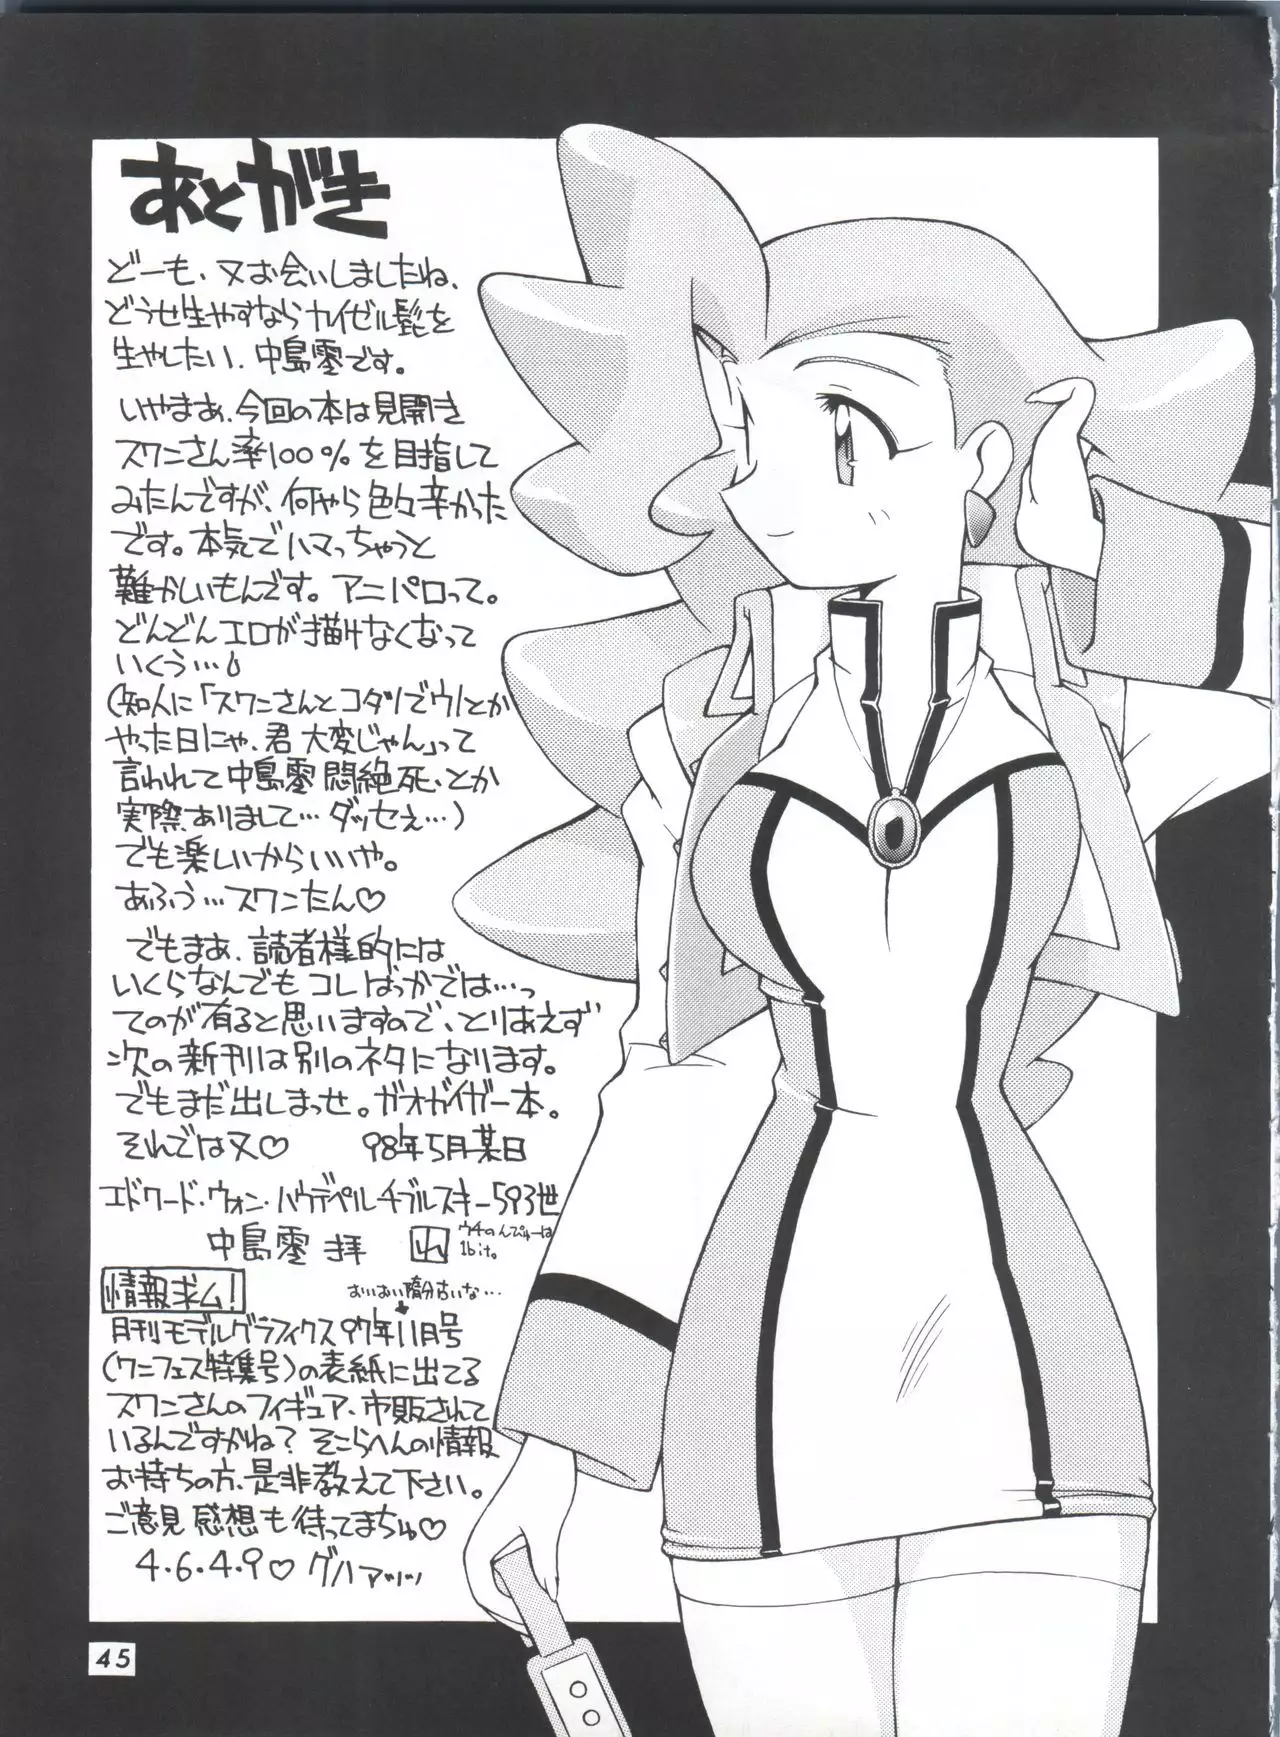 あとがき
どーも、又お会いしましたね、
どうせ生やすならカイゼル髭を
生やしたい、中島零です。
いやまあ、今回の本は見開き
スワンさん率100%を目指して
みたんですが、何やら色々辛かった
です。本気でハマっちゃうと
難かしいもんです。アニパロって。
どんどんエロが描けなくなって
いくう…
(知人に「スワンさんとコダ)でウ)とか
やった日にゃ、君大変じゃん」って
言われて中島零悶絶死、とか
実際ありまして…ダッセえ…)
でも楽しいからいいや。
あふう…スワンたん♡
でもまあ、読者様的には
いくらなんでもコレばっかでは…っ
てのが有ると思いますので、とりあえず
次の新刊は別のネタになります。
でもまだ出しまっせ。ガオガイガー本。
それでは又♡ 98年5月某日
エドワード・ウォン・ハウデペルチブルスキー593世
中島零 拝
ウチのんぴゅーは
1bit。
情報求ム!
おいおい随分古いな…
月刊モデルグラフィクス97年11月号
(ワンフェス特集号)の表紙に出てる
スワンさんのフィギュア、市販されて
いるんですかね?そこらへんの情報
お持ちの方、是非教えて下さい。
ご意見感想も待ってまちゅ♡
4.6.4.9♡グハァッッ
45